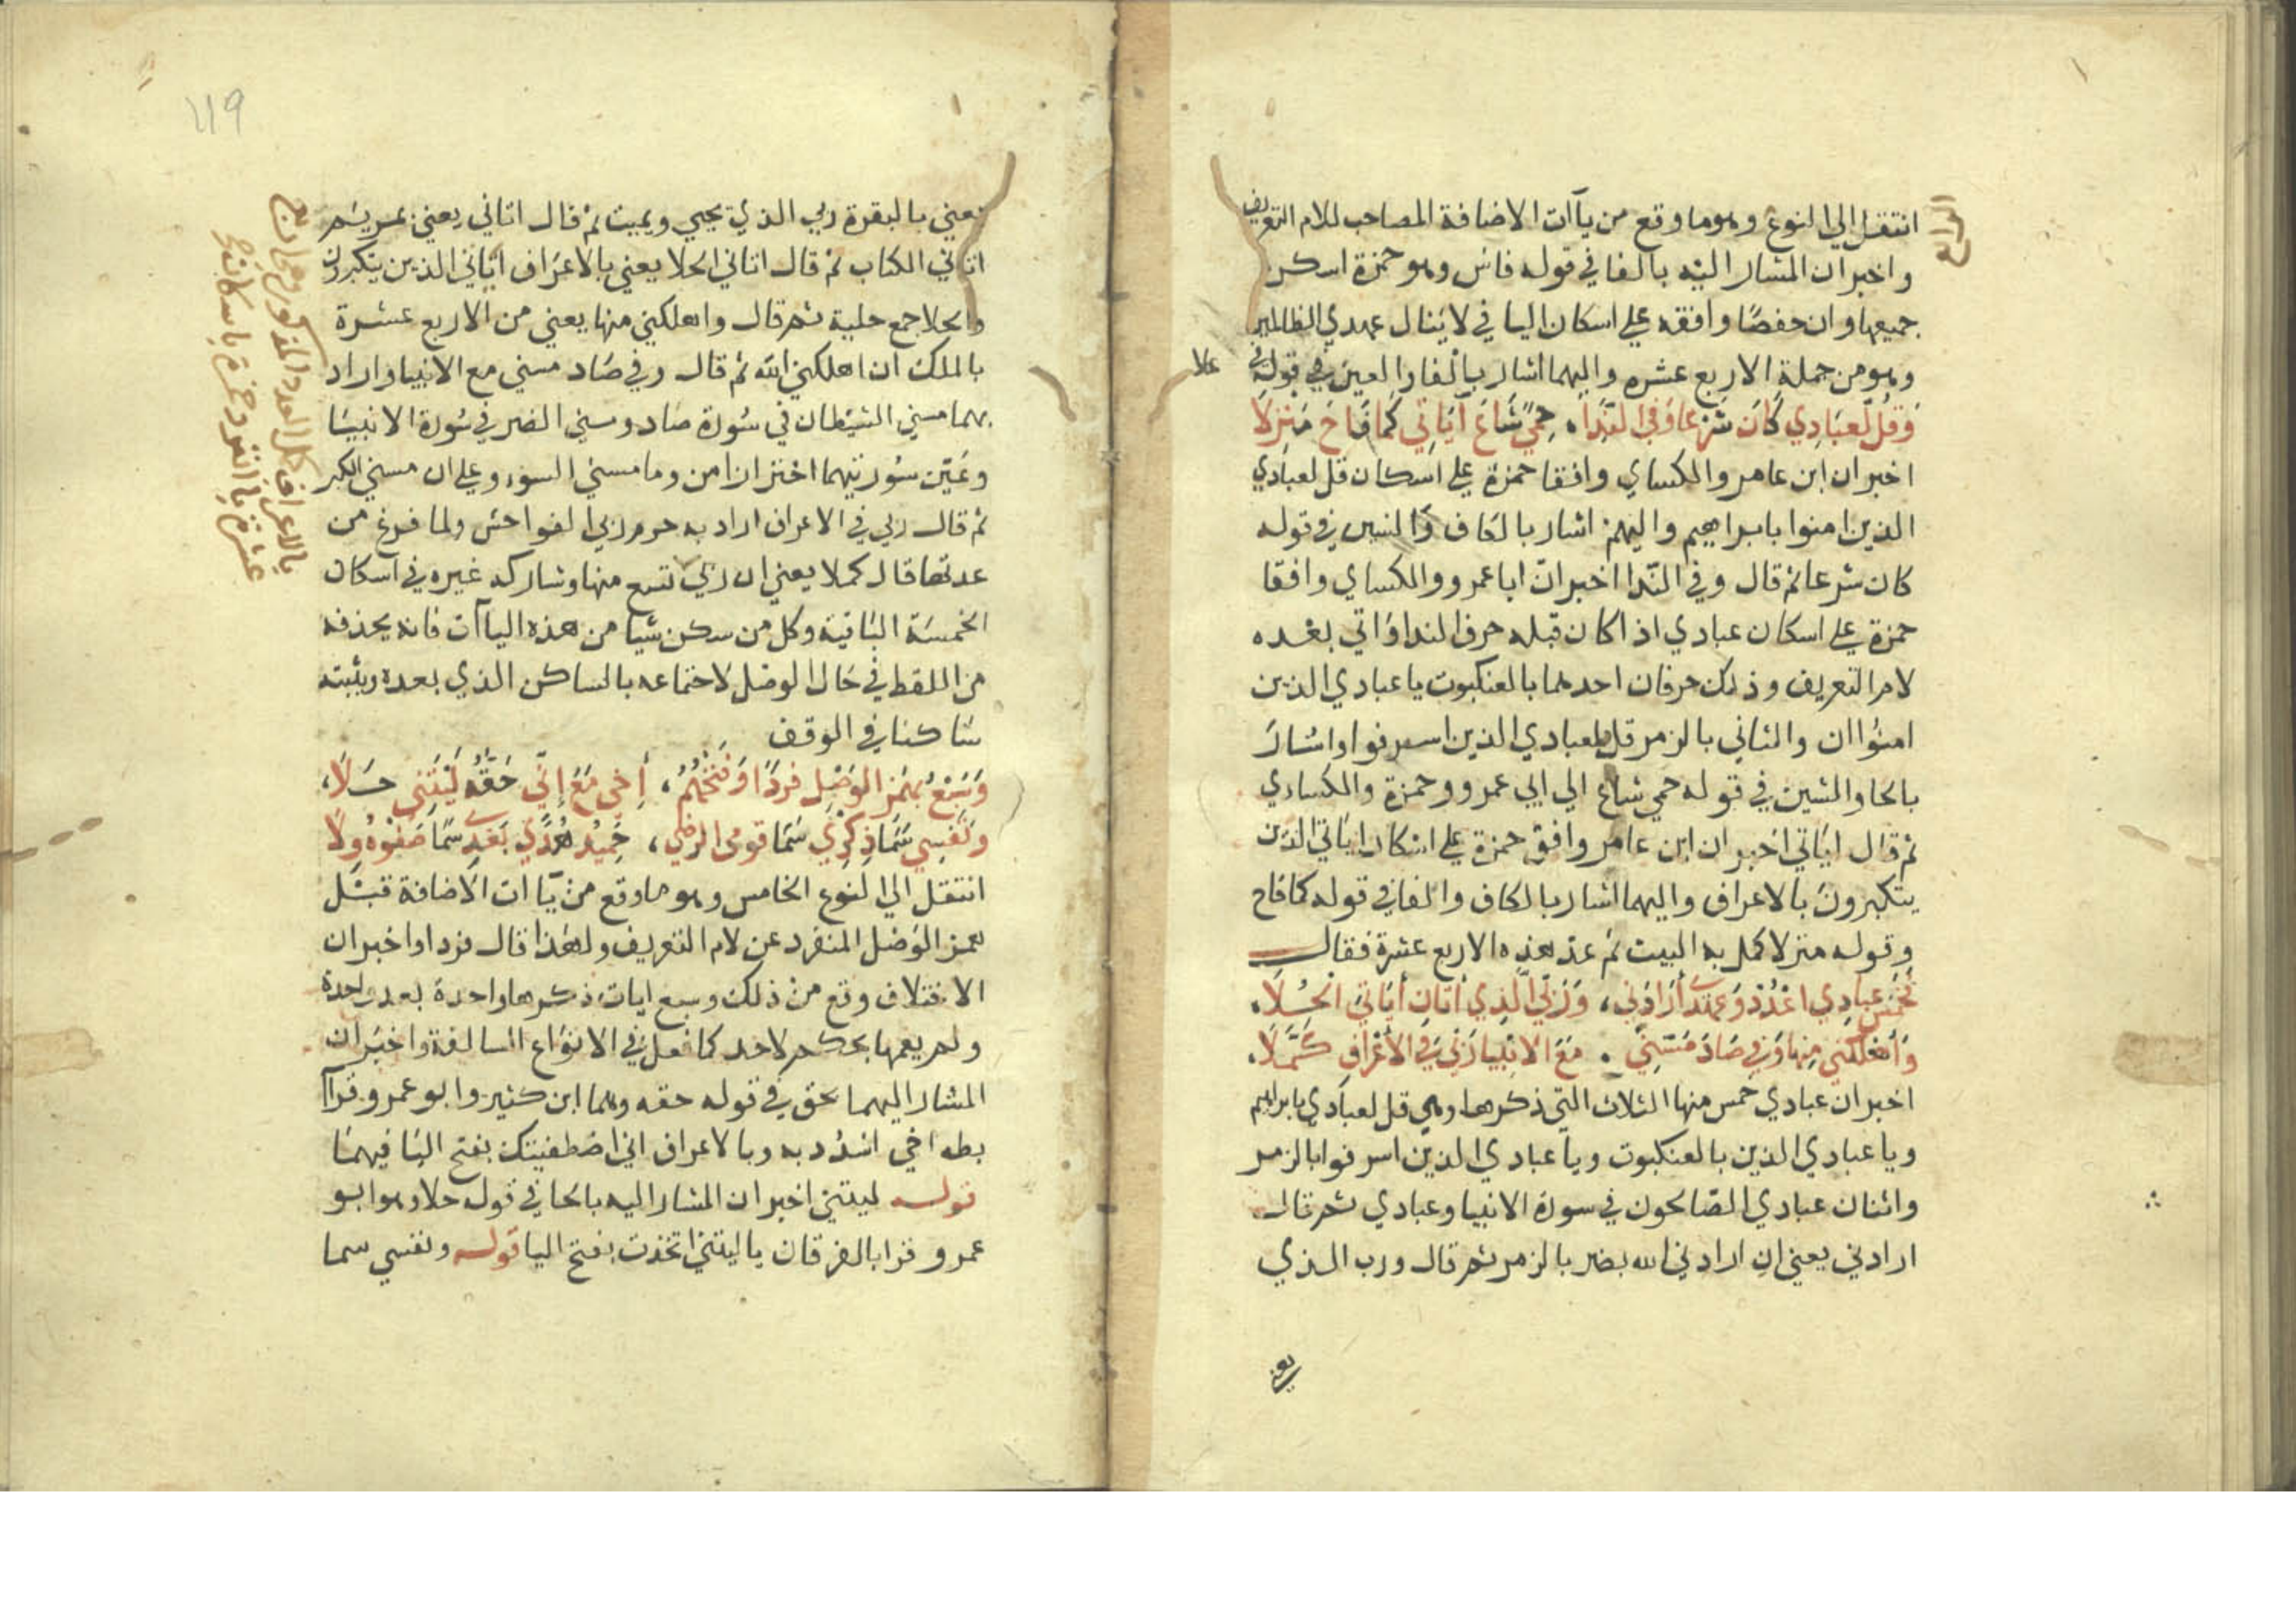 انتقل الى النوع وهو ما وقع من يآت الاضافة المصاحب للام التعريف
الرابع
واخبر ان المشار اليه بالفا في قوله فاش وهو حمزة اسكن
جميعها وان حفصا وافقه على اسكان اليا في لا ينال عهدي الظالمين
وهو من جملة الاربع عشره واليهما اشار بالفا والعين في قوله في
علا
وقل لعبادي كان شرعا وفي الندا، حمى شاع آياتي كما فاح منزلا
اخبر ان ابن عامر والكساي وافقا حمزة على اسكان قل لعبادي
الذين امنوا بابراهيم واليهم اشار بالكاف والشين في قوله
كان شرعا ثم قال وفي الندا اخبر ان ابا عمرو والكساي وافقا
حمزة على اسكان عبادي اذا كان قبله حرف الندا واتي بعده
لام التعريف وذلك حرفان احدهما بالعنكبوت يا عبادي الذين
امنوا ان والثاني بالزمر قل يعبادي الذين اسرفوا واشار
بالحا والشين في قوله حمي شاع الى ابي عمرو وحمزة والكساي
ثم قال اياتي اخبر ان ابن عامر وافق حمزة على اسكان اياتي الذين
يتكبرون بالاعراف واليهما اشار بالكاف والفا في قوله كما فاح
وقوله منزلا كمل به البيت ثم عد هذه الاربع عشرة فقال
فخمس عبادي اعدد وعهدي ارادني، وربي الذي آتان آياتي الحلا،
واهلكني منها وفي صاد مسني . مع الانبيا ربي في الاعراف كملا.
اخبر ان عبادي خمس منها الثلاث التي ذكرها وهي قل لعبادي بابراهيم
ويا عبادي الذين بالعنكبوت ويا عبادي الذين اسرفوا بالزمر
واثنان عبادي الصالحون في سورة الانبيا وعبادي ثم قال
ارادني يعني ان ارادني الله بضر بالزمر ثم قال ورب الذي
يعني
119
يعني بالبقرة ربي الذي يحيي ويميت ثم قال اتاني يعني بمريم
اتاني الكتاب ثم قال اتاني الحلا يعني بالاعراف آياتي الذين يتكبرون
والحلا جمع حلية ثم قال واهلكني منها يعني من الاربع عشرة
بالملك ان اهلكني الله ثم قال وفي صاد مسني مع الانبيا واراد
بهما مسني الشيطان في سورة صاد ومسني الضر في سورة الانبيا
وعين سورتيهما احترازا من وما مسني السوء وعلى ان مسني الكبر
ثم قال ربي في الاعراف اراد به حرم ربي الفواحش ولما فرغ من
عدتها قال كملا يعني ان ربي تسع منها وشاركه غيره في اسكان
الخمسة الباقية وكل من سكن شيا من هذه الياآت فانه يحذفه
من اللفظ في حال الوصل لاجتماعه بالساكن الذي بعده ويثبته
ساكنا في الوقف
وسبع بهمز الوصل فردا وفتحهم، اخي مع اني حقه ليتني حلا،
ونفسي سما ذكري سما قومي الرضى، حميد هدى بعدي سما صفوه ولا
انتقل الى النوع الخامس وهو ما وقع من ياات الاضافة قبل
همز الوصل المنفرد عن لام التعريف ولهذا قال فردا واخبر ان
الاختلاف وقع من ذلك وسبع ايات ذكرها واحدة بعد واحدة
ولم يعمها بحكم لاحد كما فعل في الانواع السالفة واخبر ان
المشار اليهما بحق في قوله حقه وهما ابن كثير وابو عمرو قرآ
بطه اخي اشدد به وبالاعراف اني اصطفيتك بفتح اليا فيهما
قوله ليتني اخبر ان المشار اليه بالحا في قوله حلا وهو ابو
عمرو قرا بالفرقان يا ليتني اتخذت بفتح اليا قوله ونفسي سما